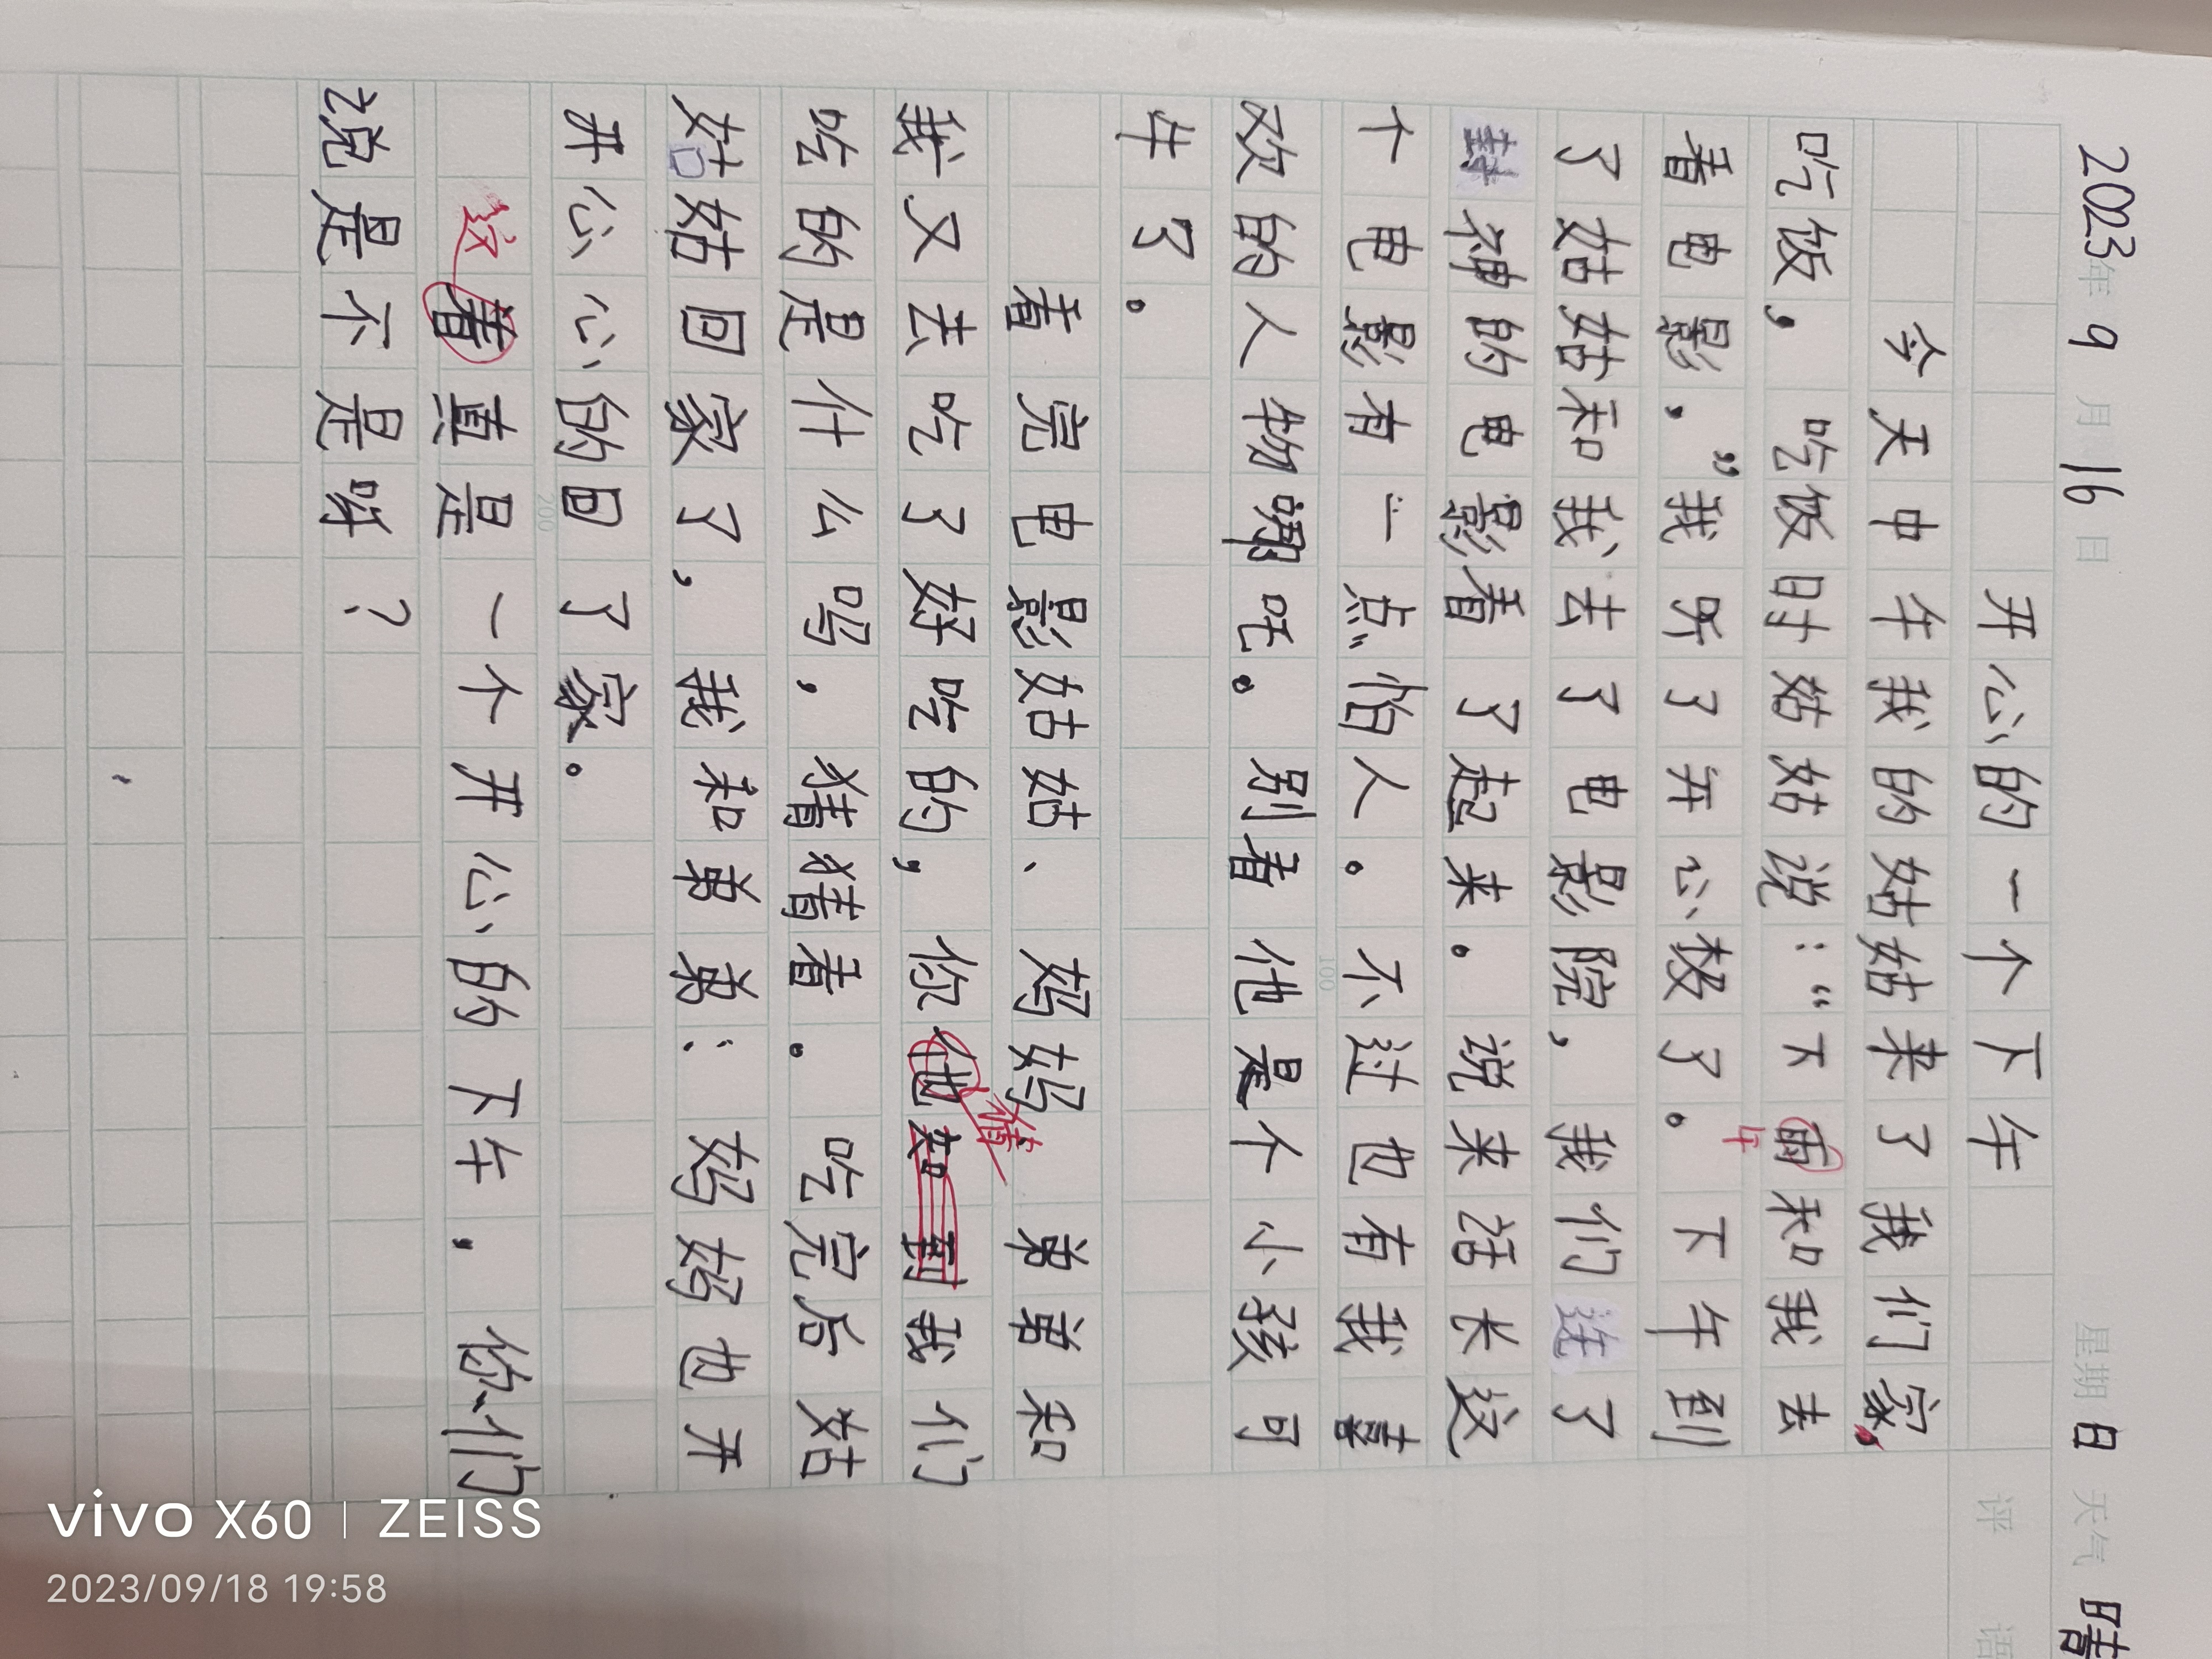 2023年 9 月 16 日 星期 日 天气 晴
开心的一个下午
评语
今天中午我的姑姑来了我们家,
吃饭,吃饭时姑姑说:“下雨和我去
午
看电影.”我听了开心极了。下午到
了姑姑和我去了电影院,我们选了
封神的电影看了起来。说来话长这
个电影有一点怕人。不过也有我喜
100
欢的人物哪吒。别看他是个小孩可
牛了。
看完电影姑姑、妈妈 弟弟和
猜
我又去吃了好吃的,你他知到我们
吃的是什么吗,猜猜看。吃完后姑
姑姑回家了,我和弟弟:妈妈也开
开心心的回了家。
200
这看真是一个开心的下午,你们
说是不是呀?
vivo X60 | ZEISS
2023/09/18 19:58